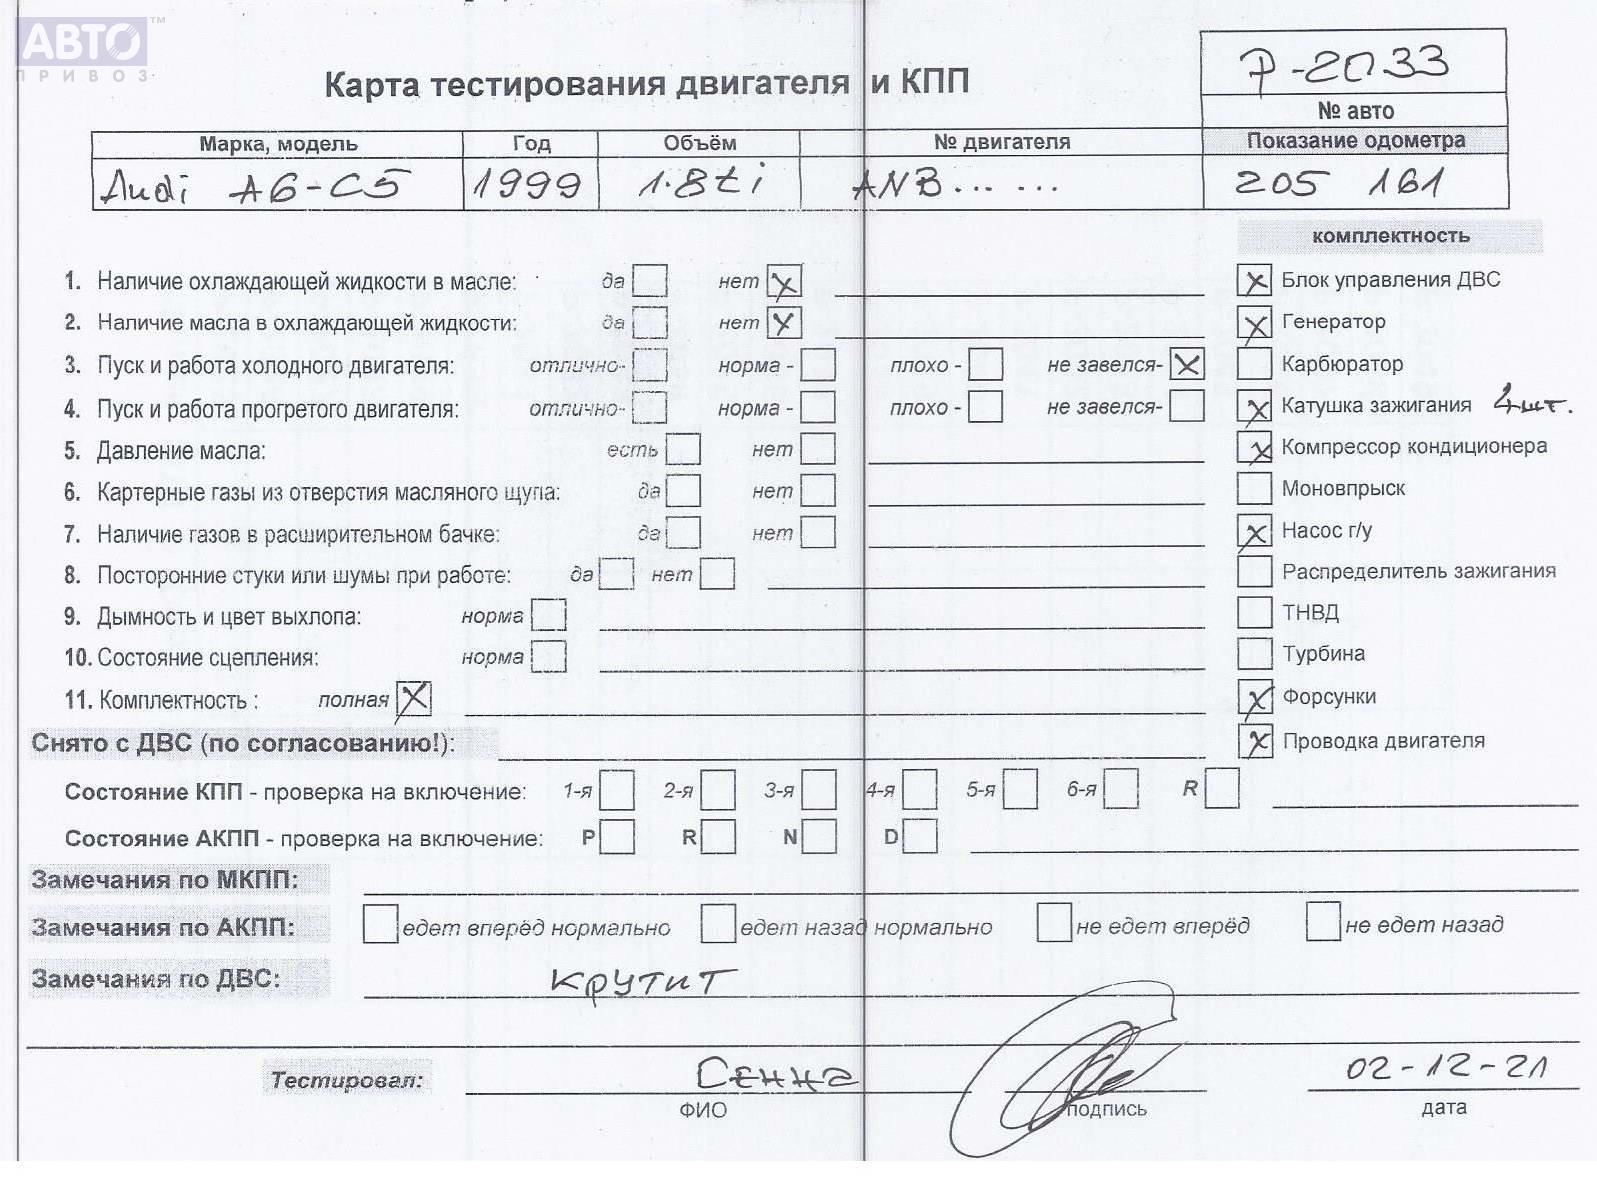 АВТО™
ПРИВОЗ
Карта тестирования двигателя и КПП
Р-2033
№ авто
Марка, модель Год Объём № двигателя Показание одометра
Audi A6-C5 1999 1.8ti ANB...... 205 161
комплектность
1. Наличие охлаждающей жидкости в масле: да нет x
Блок управления ДВС x
2. Наличие масла в охлаждающей жидкости: да нет x
Генератор x
3. Пуск и работа холодного двигателя: отлично- норма - плохо - не завелся- x
Карбюратор
4. Пуск и работа прогретого двигателя: отлично- норма - плохо - не завелся-
x Катушка зажигания 4шт.
5. Давление масла: есть нет
x Компрессор кондиционера
6. Картерные газы из отверстия масляного щупа: да нет
Моновпрыск
7. Наличие газов в расширительном бачке: да нет
x Насос г/у
8. Посторонние стуки или шумы при работе: да нет
Распределитель зажигания
9. Дымность и цвет выхлопа: норма
ТНВД
10. Состояние сцепления: норма
Турбина
11. Комплектность : полная x
x Форсунки
Снято с ДВС (по согласованию!):
x Проводка двигателя
Состояние КПП - проверка на включение: 1-я 2-я 3-я 4-я 5-я 6-я R
Состояние АКПП - проверка на включение: P R N D
Замечания по МКПП:
Замечания по АКПП: едет вперёд нормально едет назад нормально не едет вперёд не едет назад
Замечания по ДВС: крутит
Тестировал: 02-12-21
ФИО подпись дата